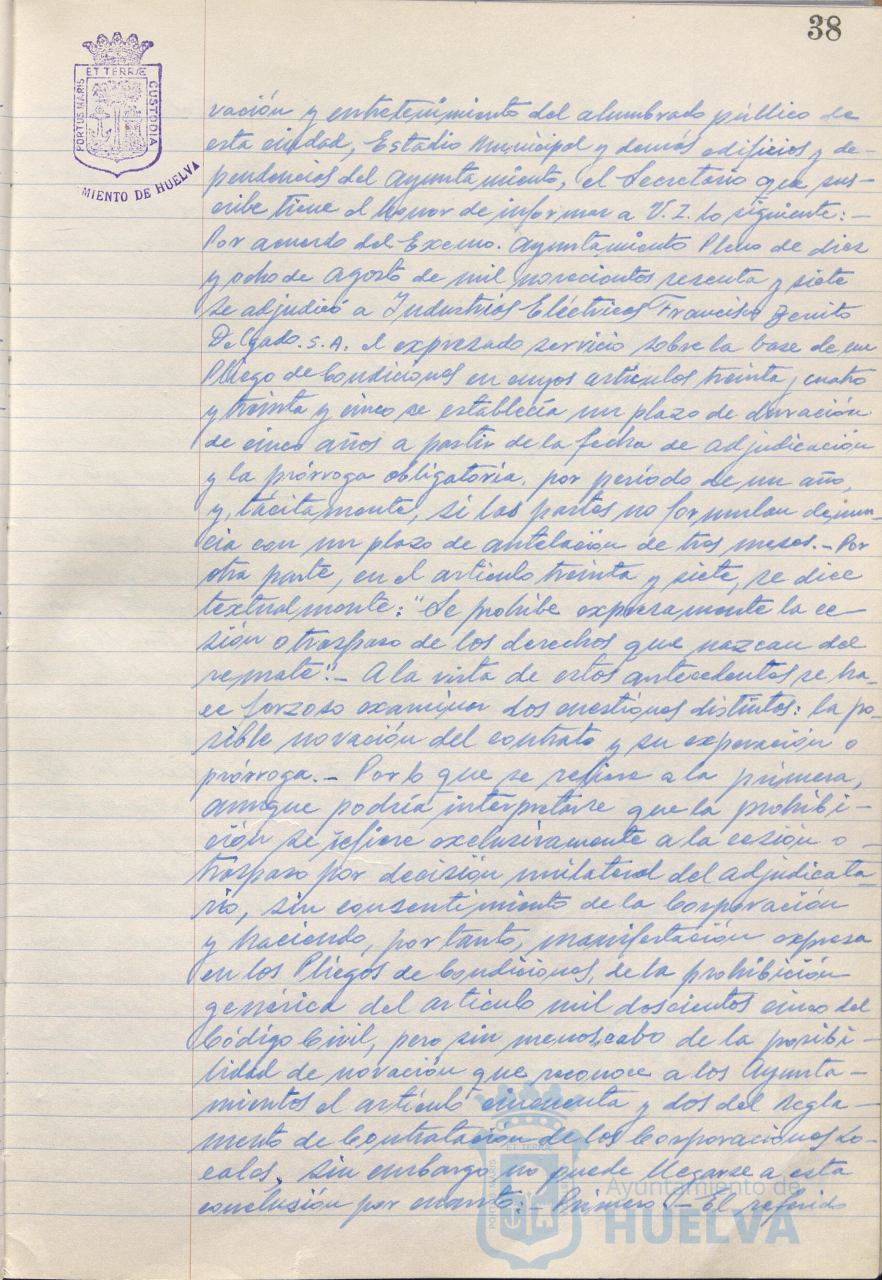 38
ET TERRÆ
PORTUS MARIS
CUSTODIA
MIENTO DE HUELVA
vación y entretenimiento del alumbrado público de
esta ciudad, Estadio Municipal y demás edificios y de-
pendencias del Ayuntamiento, el Secretario que sus-
cribe tiene el honor de informar a V.I. lo siguiente: -
Por acuerdo del Excmo. Ayuntamiento Pleno de diez
y ocho de Agosto de mil novecientos sesenta y siete
se adjudicó a Industrias Eléctricas Francisco Benito
Delgado. S.A. el expresado servicio sobre la base de un
Pliego de Condiciones en cuyos artículos treinta y cuatro
y treinta y cinco se establecía un plazo de duración
de cinco años a partir de la fecha de adjudicación
y la prórroga obligatoria, por período de un año,
y, tácitamente, si las partes no formulan denun-
cia con un plazo de antelación de tres meses. - Por
otra parte, en el artículo treinta y siete, se dice
textualmente: "Se prohibe expresamente la ce-
sión o traspaso de los derechos que nazcan del
remate". - A la vista de estos antecedentes se ha-
ce forzoso examinar dos cuestiones distintas: la po-
sible novación del contrato y su expiración o
prórroga. - Por lo que se refiere a la primera,
aunque podría interpretarse que la prohibi-
ción se refiere exclusivamente a la cesión o -
traspaso por decisión unilateral del adjudicata-
rio, sin consentimiento de la Corporación
y haciendo, por tanto, manifestación expresa
en los Pliegos de Condiciones, de la prohibición
genérica del artículo mil doscientos cinco del
Código Civil, pero sin menoscabo de la posibi-
lidad de novación que reconoce a los Ayunta-
mientos el artículo cincuenta y dos del Regla-
mento de Contratación de las Corporaciones Lo-
cales, sin embargo no puede llegarse a esta
conclusión por cuanto: - Primero. - El referido
ET TERRÆ
PORTUS MARIS
CUSTODIA
Ayuntamiento de
HUELVA